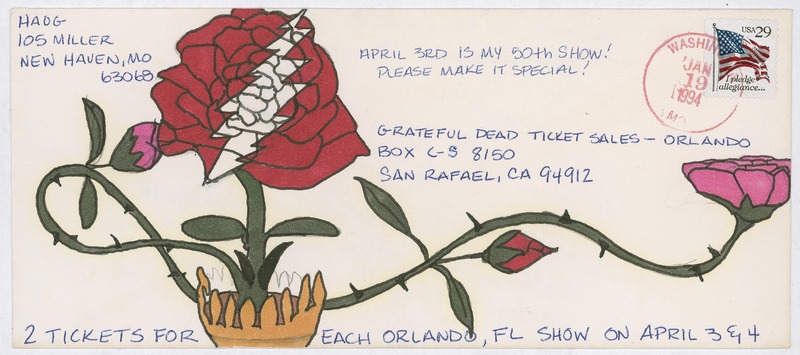 HADG
105 MILLER
NEW HAVEN, MO
63068
APRIL 3RD IS MY 50th SHOW!
PLEASE MAKE IT SPECIAL!
WASHIN
JAN
19
1994
MO
USA 29
I pledge
allegiance...
GRATEFUL DEAD TICKET SALES – ORLANDO
BOX C-S 8150
SAN RAFAEL, CA 94912
2 TICKETS FOR EACH ORLANDO, FL SHOW ON APRIL 3 & 4